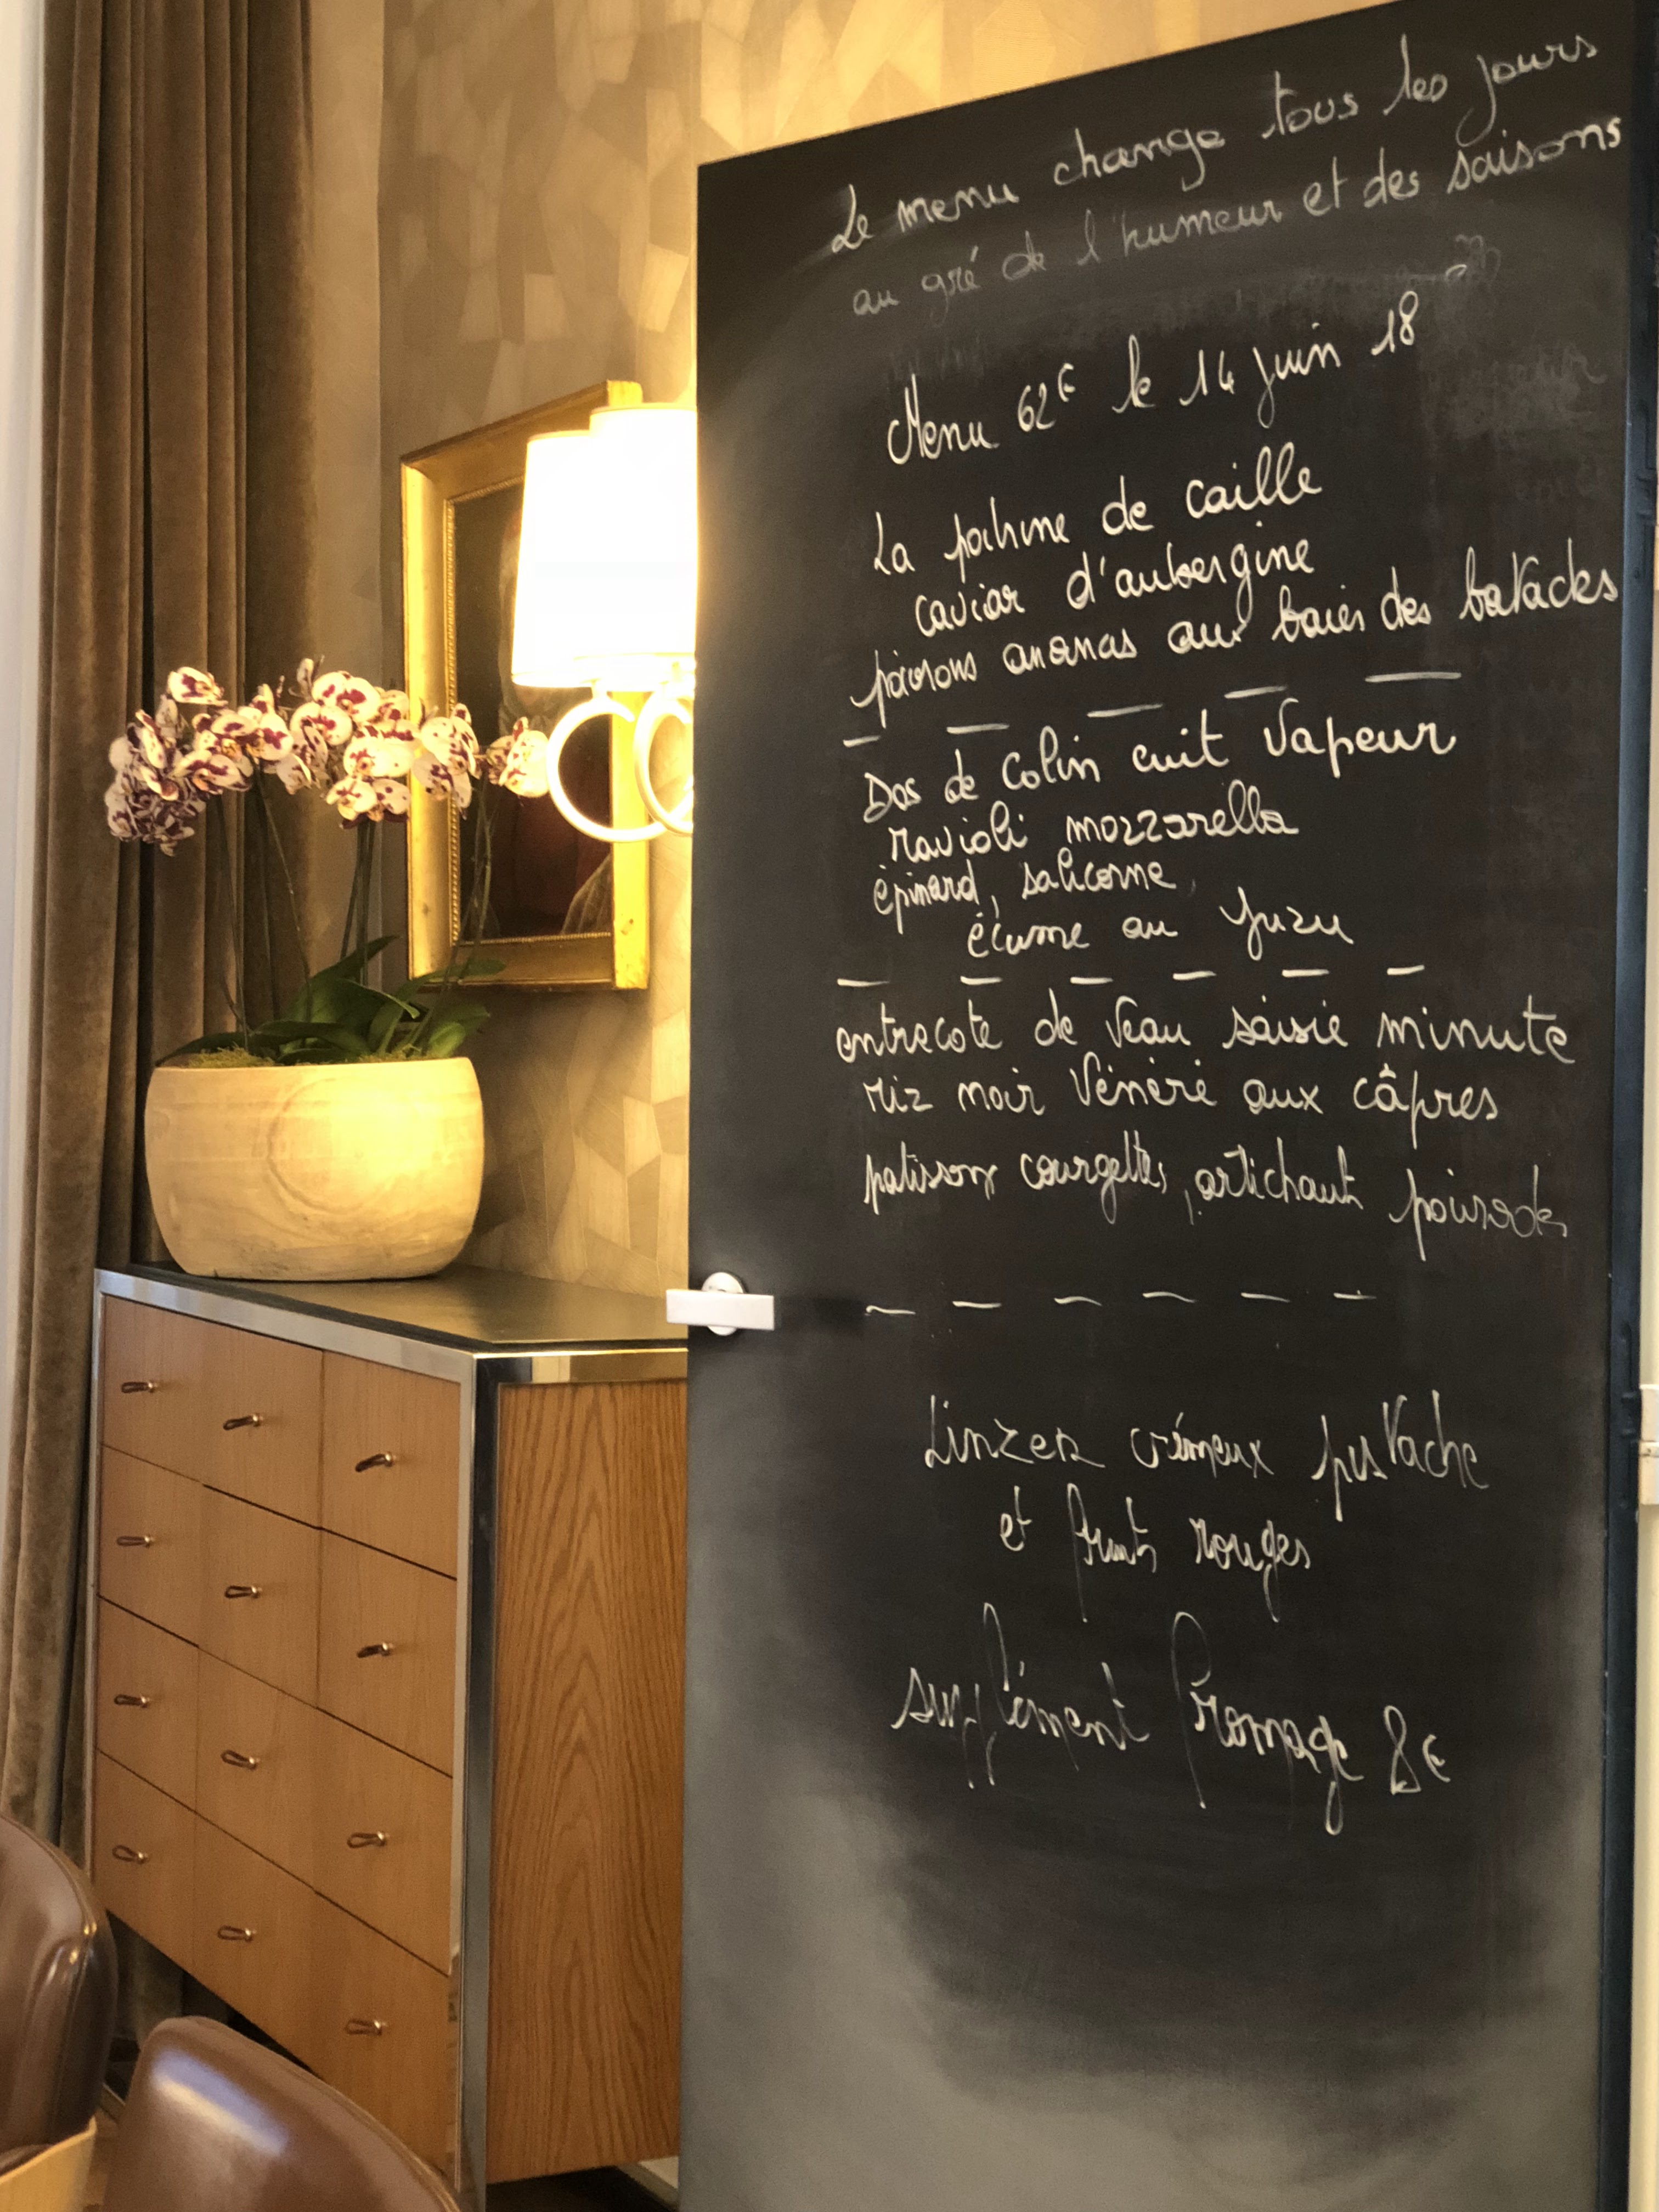 Le menu change tous les jours
au gré de l'humeur et des saisons
Menu 62€ le 14 juin 18
La poitrine de caille
caviar d'aubergine
poivrons ananas aux baies des batacks
Dos de Colin cuit Vapeur
ravioli mozzarella
épinard, salicorne,
écume au yuzu
entrecote de Veau saisie minute
riz noir Vénéré aux câpres
patissons courgettes, artichauts poivrades
Linzer crémeux pistache
et fruits rouges
supplément fromage 8€